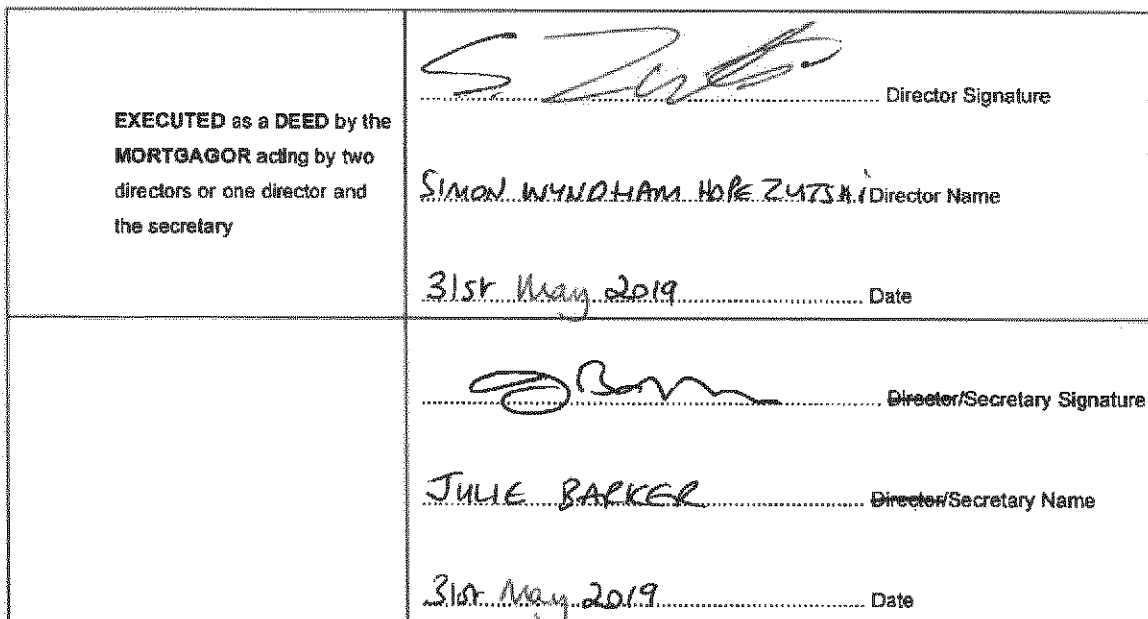 S. Zutshi Director Signature
EXECUTED as a DEED by the
MORTGAGOR acting by two
directors or one director and
the secretary
SIMON WYNDHAM HOPE ZUTSHi Director Name
31st May 2019 Date
Director/Secretary Signature
JULIE BARKER Director/Secretary Name
31st May 2019 Date